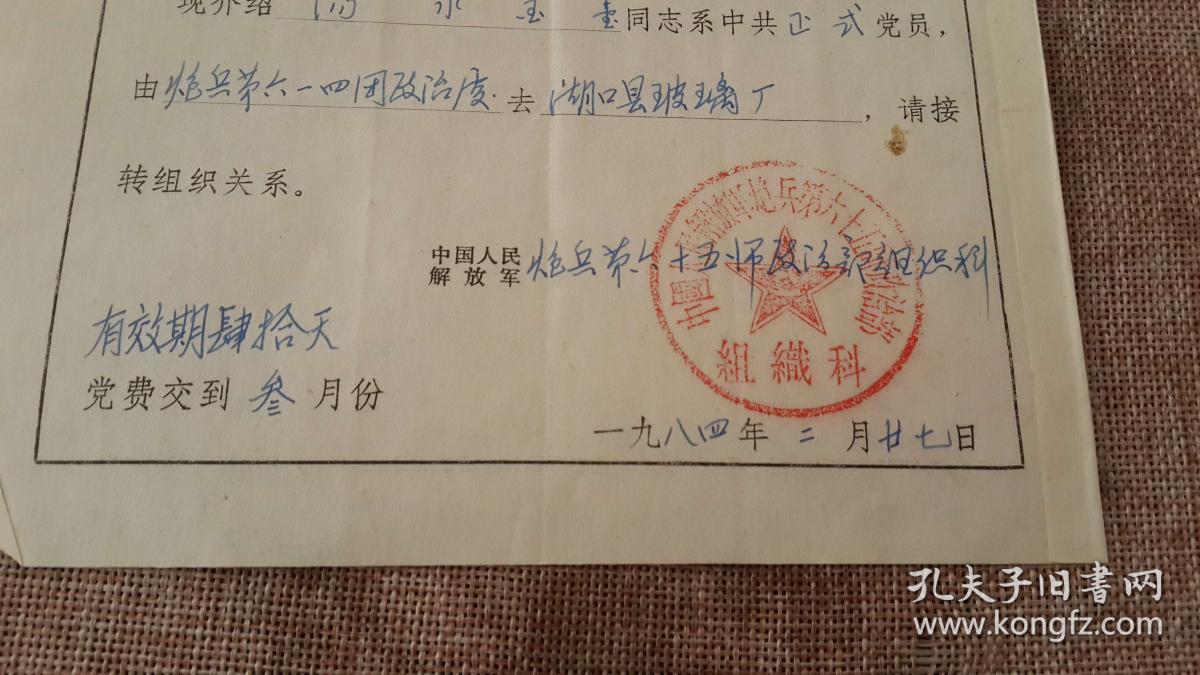 现介绍 同志系中共正式党员，
由炮兵第六一四团政治处去湖口县玻璃厂，请接
转组织关系。
中国人民
解放军 炮兵第六十五师政治部组织科
組織科
有效期肆拾天
党费交到叁月份
一九八四年二月廿七日
孔夫子旧书网
www.kongfz.com